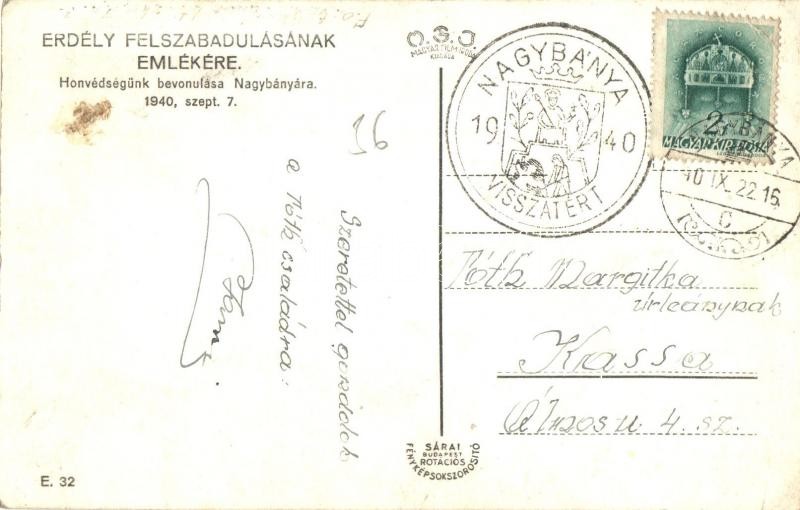 ERDÉLY FELSZABADULÁSÁNAK
EMLÉKÉRE.
Honvédségünk bevonulása Nagybányára.
1940, szept. 7.
O.S.J.
MAGYAR FILM IRODA
KIADÁSA
NAGYBÁNYA
19 40
VISSZATÉRT
2
MAGYAR KIR. POSTA
NAGYBÁNYA
40 IX. 22 16
C
56
Szeretettel gondolok
a Tóth családra:
Tóth Margitka
úrleánynak
Kassa
Álmos u 4. sz.
SÁRAI
BUDAPEST
ROTÁCIÓS
FÉNYKÉPSOKSZOROSÍTÓ
E. 32